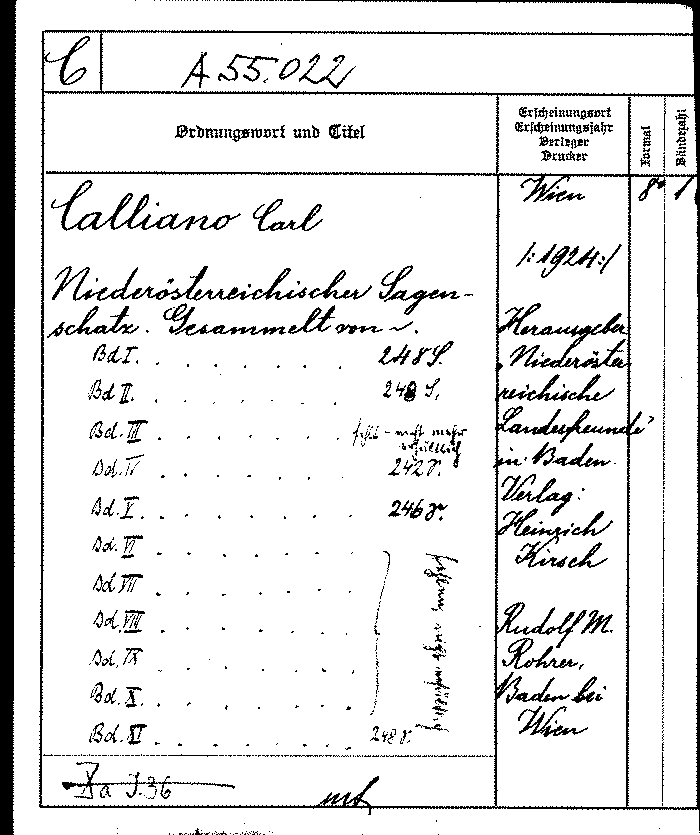 C
A 55.022
Ordnungswort und Titel
Erscheinungsort
Erscheinungsjahr
Verleger
Drucker
Format
Bändezahl
Calliano Carl
Niederösterreichischer Sagen-
schatz. Gesammelt von ~.
Bd I. . . . . . . 248 S.
Bd II. . . . . . . 248 S.
Bd. III . . . . . . fehlt - nicht mehr
erhältlich
Bd. IV . . . . . . 242 S.
Bd. V. . . . . . . 246 S.
Bd. VI . . . . . .
Bd VII . . . . . .
Bd. VIII . . . . . .
Bd. IX . . . . . .
Bd. X. . . . . . .
fehlen, nicht erhältlich
Bd. XI . . . . . . 248 S.
Wien
/:1924:/
Herausgeber
"Niederöster
reichische
Landesfreunde"
in Baden.
Verlag:
Heinrich
Kirsch
Rudolf M.
Rohrer,
Baden bei
Wien
8°
1